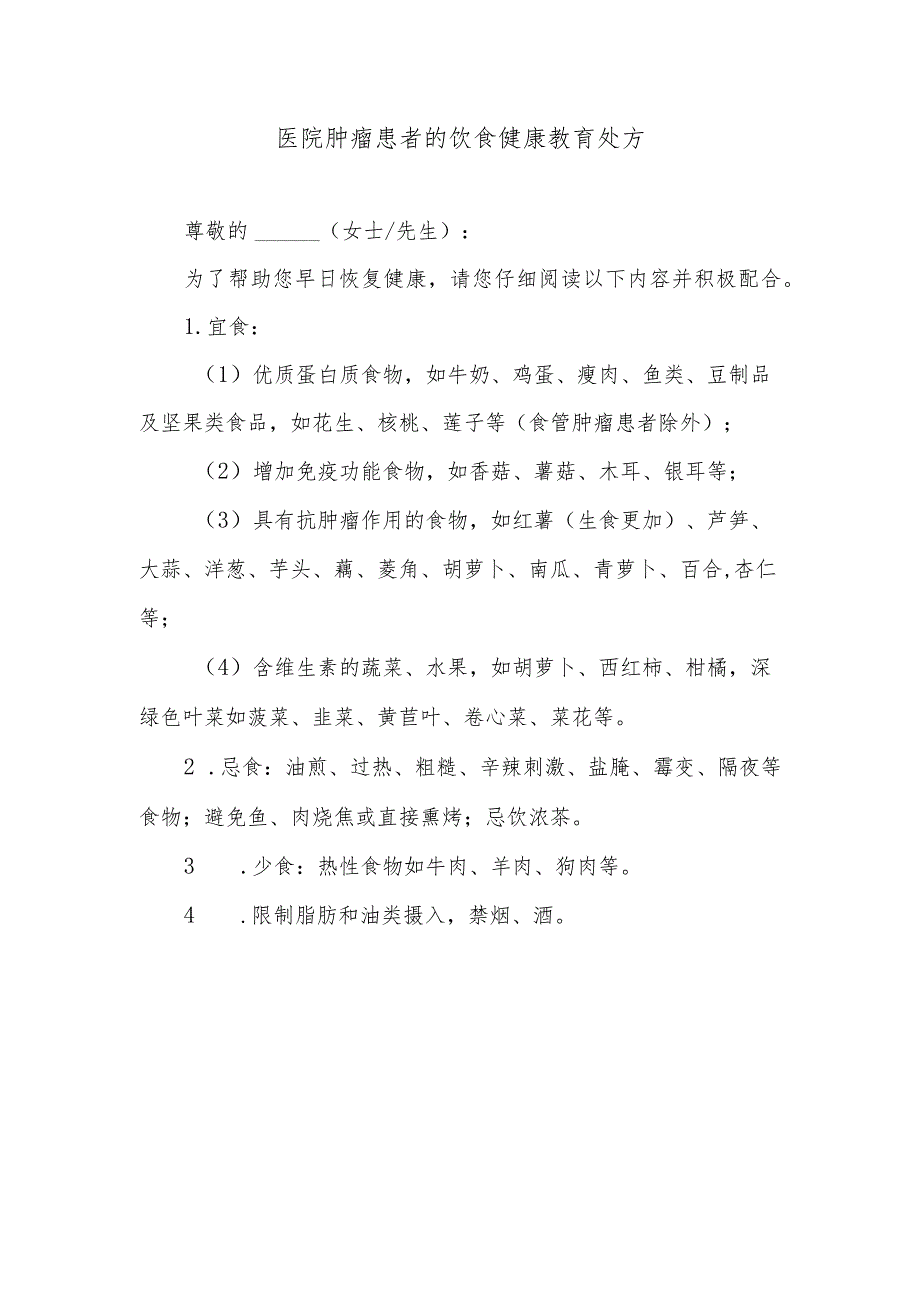 医院肿瘤患者的饮食健康教育处方
尊敬的 ______（女士/先生）：
为了帮助您早日恢复健康，请您仔细阅读以下内容并积极配合。
1.宜食：
（1）优质蛋白质食物，如牛奶、鸡蛋、瘦肉、鱼类、豆制品
及坚果类食品，如花生、核桃、莲子等（食管肿瘤患者除外）；
（2）增加免疫功能食物，如香菇、薯菇、木耳、银耳等；
（3）具有抗肿瘤作用的食物，如红薯（生食更加）、芦笋、
大蒜、洋葱、芋头、藕、菱角、胡萝卜、南瓜、青萝卜、百合,杏仁
等；
（4）含维生素的蔬菜、水果，如胡萝卜、西红柿、柑橘，深
绿色叶菜如菠菜、韭菜、黄苣叶、卷心菜、菜花等。
2 .忌食：油煎、过热、粗糙、辛辣刺激、盐腌、霉变、隔夜等
食物；避免鱼、肉烧焦或直接熏烤；忌饮浓茶。
3 .少食：热性食物如牛肉、羊肉、狗肉等。
4 .限制脂肪和油类摄入，禁烟、酒。